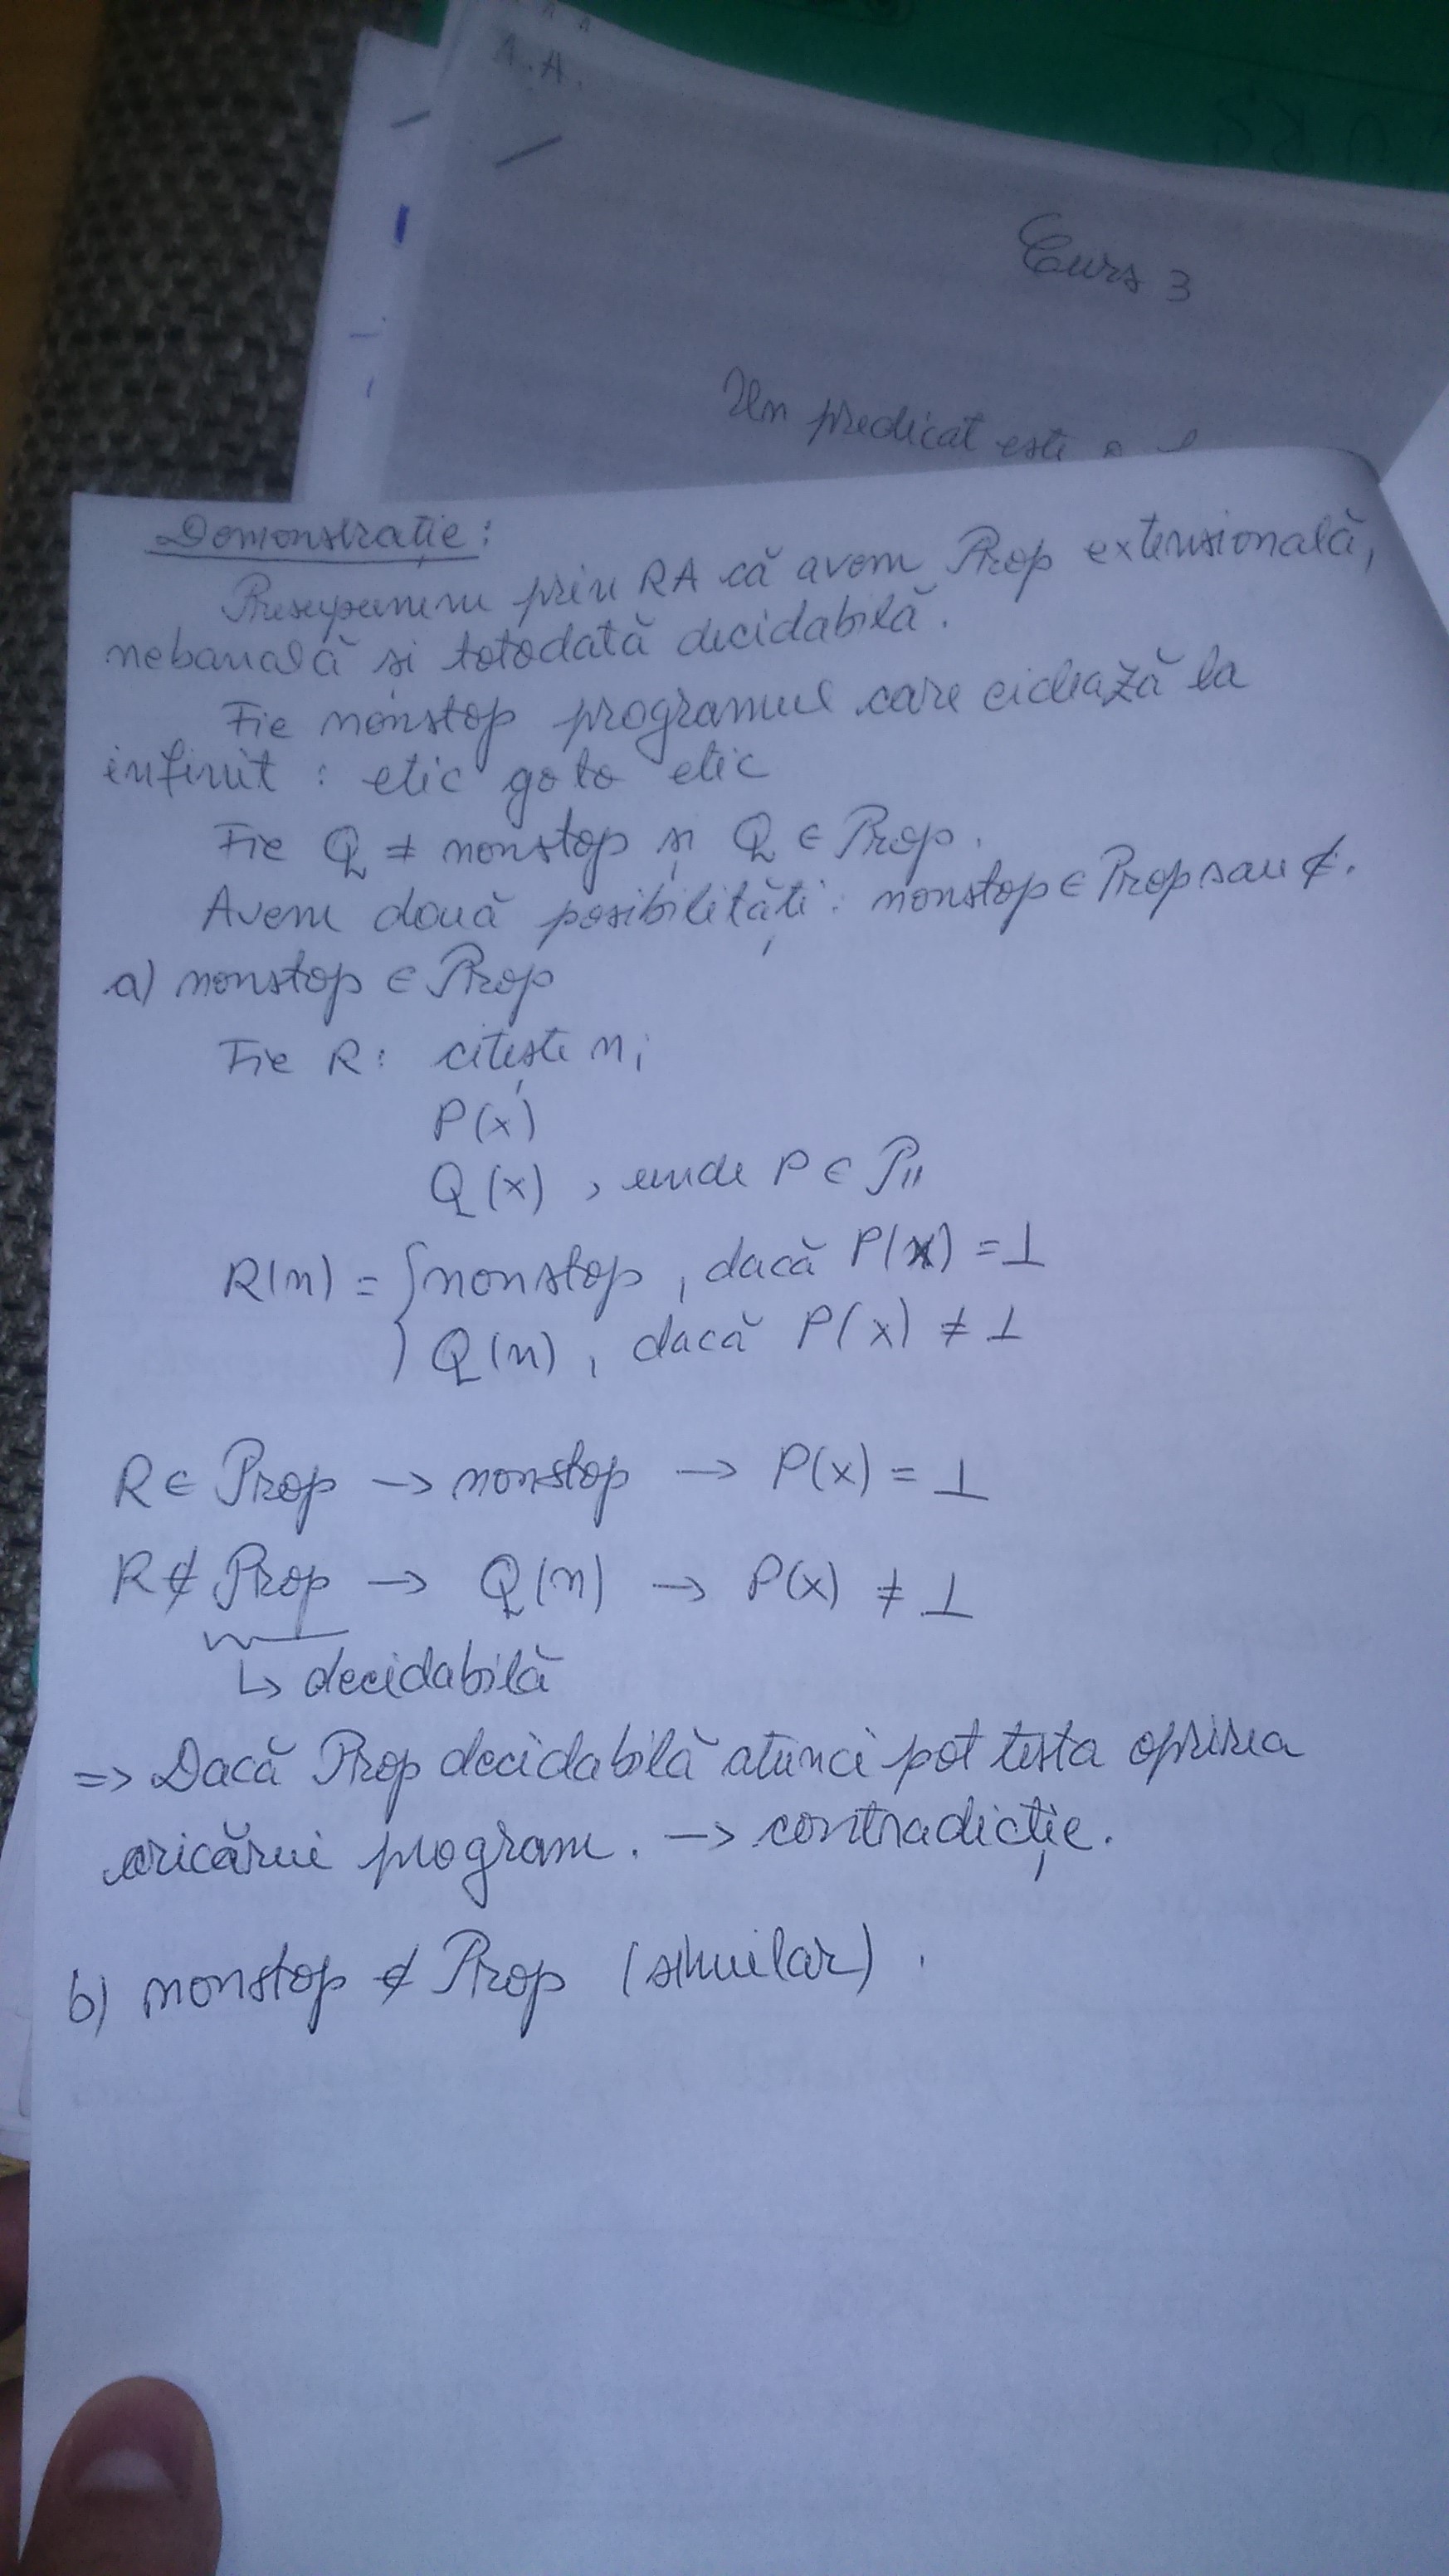 A.A.
Curs 3
Un predicat este
Demonstrație:
Presupunem prin RA că avem Prop extensională,
nebanală și totodată decidabilă.
Fie nonstop programul care ciclează la
infinit : etic go to etic
Fie Q ≠ nonstop și Q ∈ Prop.
Avem două posibilități: nonstop ∈ Prop sau ∉.
a) nonstop ∈ Prop
Fie R: citește n;
P(x)
Q(x) , unde P ∈ P11
R(n) = { nonstop , dacă P(x) = ⊥
Q(n) , dacă P(x) ≠ ⊥
R ∈ Prop → nonstop → P(x) = ⊥
R ∉ Prop → Q(n) → P(x) ≠ ⊥
↳ decidabilă
=> Dacă Prop decidabilă atunci pot testa oprirea
oricărui program. → contradicție.
b) nonstop ∉ Prop (similar).